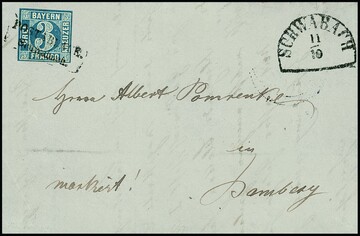 BAYERN
3
KREUZER
FRANCO
SCHWABACH
11
10
Herrn Albert
in
Bamberg
markirt!